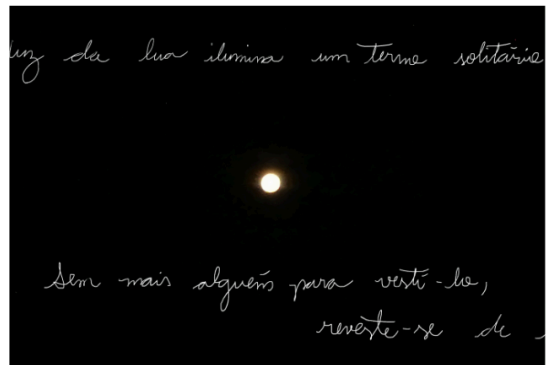 luz da lua ilumina um terno solitário
Sem mais alguém para vestí-lo,
reveste-se de